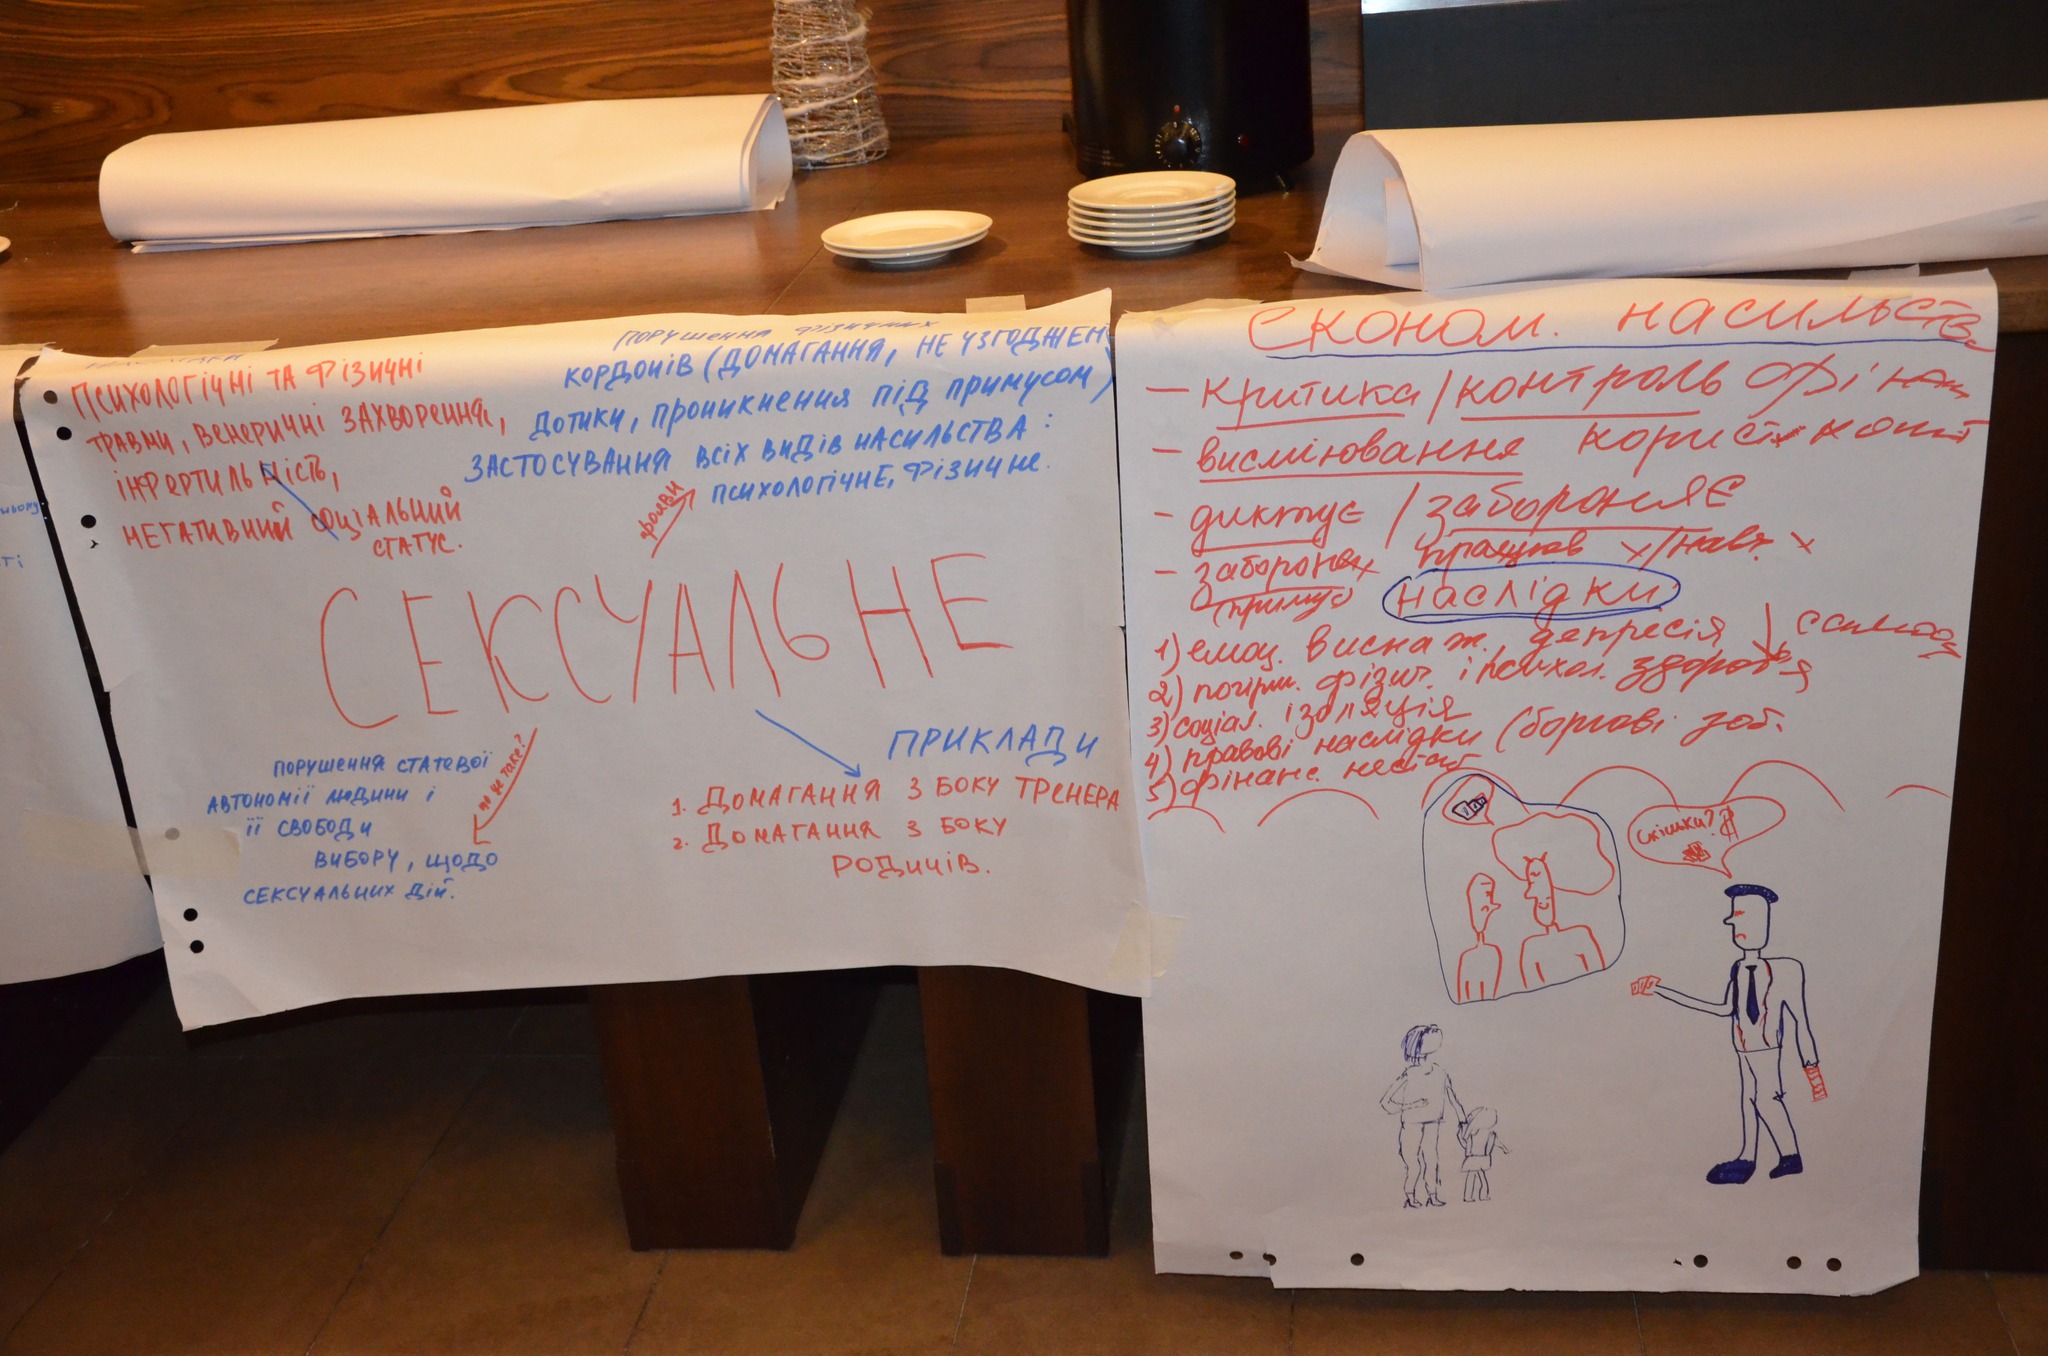 ПСИХОЛОГІЧНІ ТА ФІЗИЧНІ
ТРАВМИ, ВЕНЕРИЧНІ ЗАХВОРЕННЯ,
ІНФЕРТИЛЬНІСТЬ,
НЕГАТИВНИЙ СОЦІАЛЬНИЙ
СТАТУС.
ПОРУШЕННЯ ФІЗИЧНИХ
КОРДОНІВ (ДОМАГАННЯ, НЕ УЗГОДЖЕНІ
ДОТИКИ, ПРОНИКНЕННЯ ПІД ПРИМУСОМ)
ЗАСТОСУВАННЯ ВСІХ ВИДІВ НАСИЛЬСТВА:
ПСИХОЛОГІЧНЕ, ФІЗИЧНЕ.
прояви
СЕКСУАЛЬНЕ
що це таке?
ПОРУШЕННЯ СТАТЕВОЇ
АВТОНОМІЇ ЛЮДИНИ І
ЇЇ СВОБОДИ
ВИБОРУ, ЩОДО
СЕКСУАЛЬНИХ ДІЙ.
ПРИКЛАДИ
1. ДОМАГАННЯ З БОКУ ТРЕНЕРА
2. ДОМАГАННЯ З БОКУ
РОДИЧІВ.
Економ. насильств
- критика / контроль фінан
- висміювання корист кошт
- диктує / забороняє
- забороня працюв /навч
(примус)
наслідки
1) емоц. виснаж. депресія ↓ самоо
2) погірш. фізич. і психол. здоров'я
3) соціал. ізоляція
4) правові наслідки (боргові зоб.
5) фінанс. нестаб
Скільки?